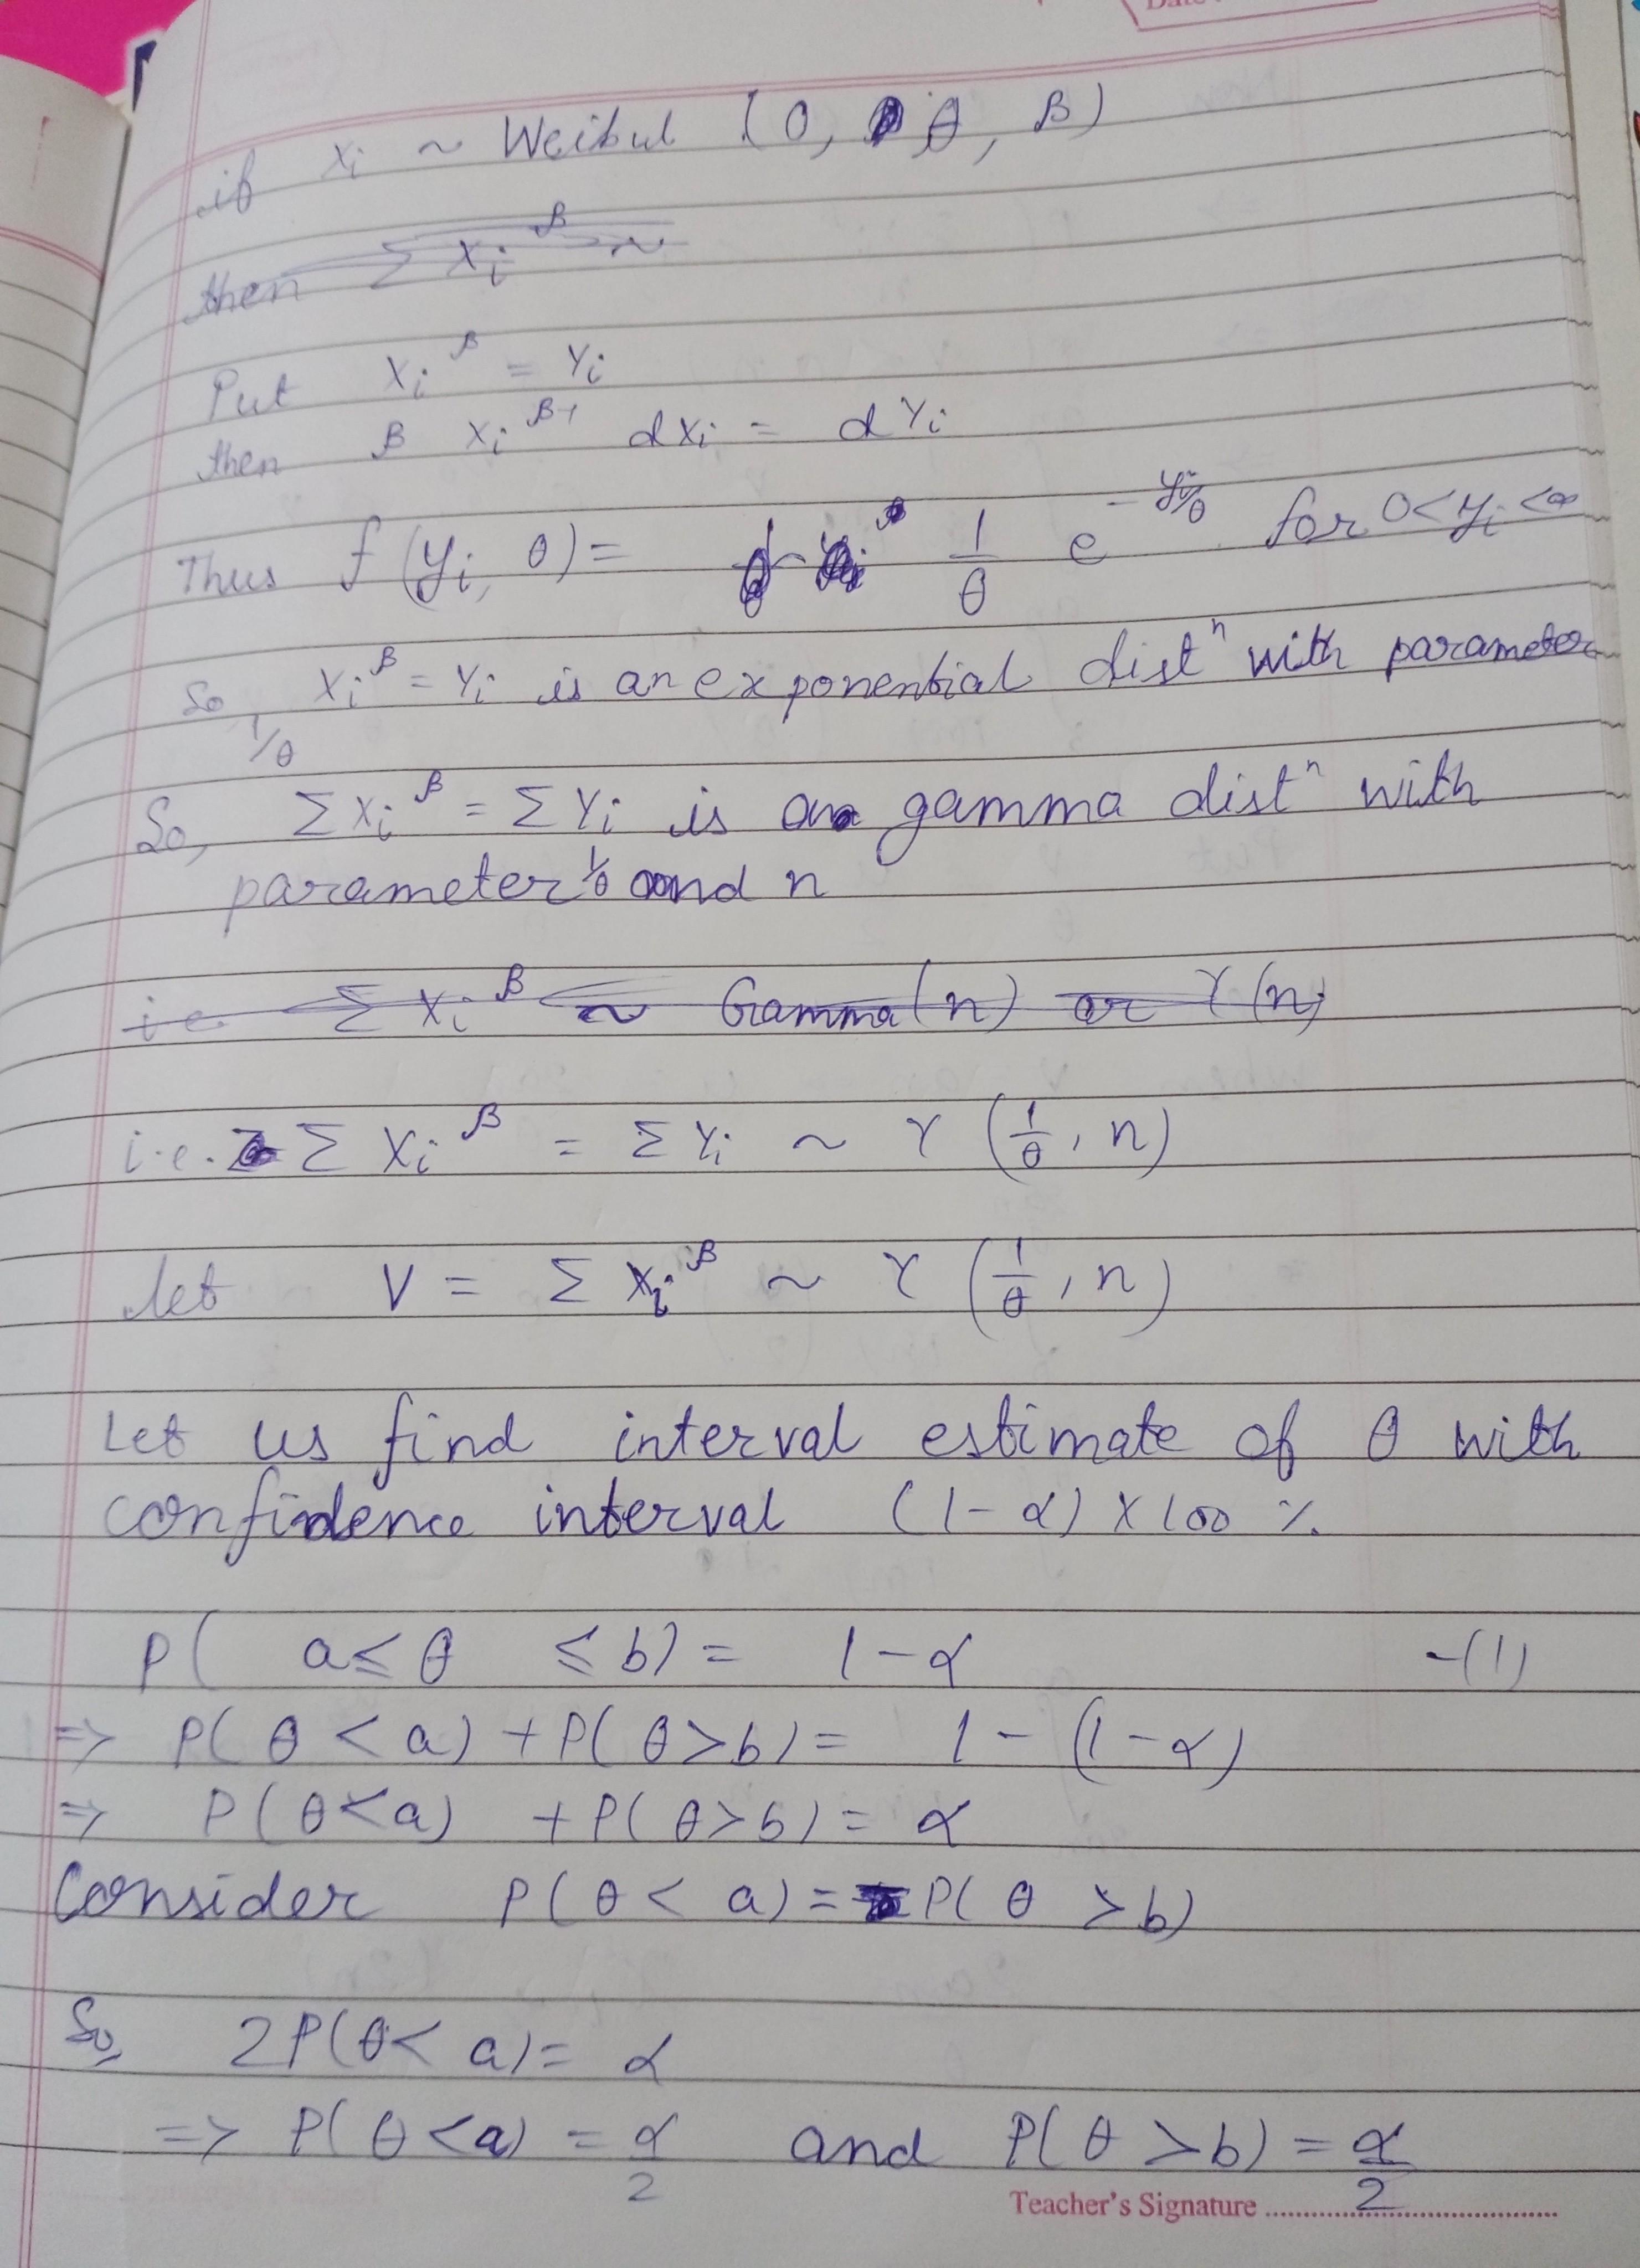 if Xi ~ Weibul (0, θ, β)
then Σ Xi^β ~
Put Xi^β = Yi
then β Xi^β-1 dXi = dYi
Thus f(yi, θ) = 1/θ e^-yi/θ for 0<yi<∞
So, Xi^β = Yi is an exponential dist^n with parameter
1/θ
So, ΣXi^β = ΣYi is a gamma dist^n with
parameter 1/θ and n
i.e. ΣXi^β ~ Gamma(n) or γ(n)
i.e. Σ Xi^β = Σ Yi ~ γ (1/θ, n)
let V = Σ Xi^β ~ γ (1/θ, n)
Let us find interval estimate of θ with
confidence interval (1-α) × 100 %
P( a≤ θ ≤ b) = 1-α -(1)
=> P( θ < a) + P( θ > b) = 1 - (1-α)
=> P(θ<a) + P( θ> b) = α
Consider P(θ < a) = P( θ > b)
So, 2P(θ< a) = α
=> P( θ <a) = α/2 and P( θ > b) = α/2
Teacher's Signature ..........................................